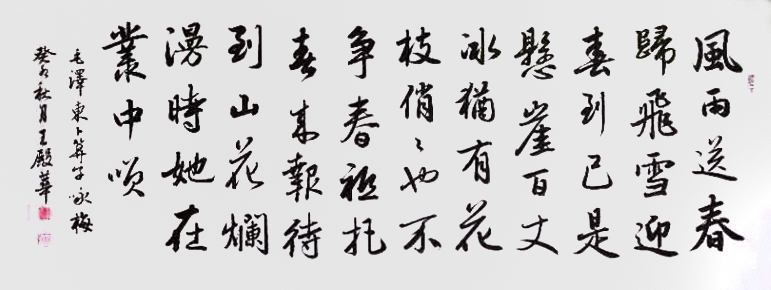 風雨送春
歸飛雪迎
春到已是
懸崖百丈
冰猶有花
枝俏〻也不
争春祗把
春来報待
到山花爛
漫時她在
叢中咲
毛澤東卜算子咏梅
癸卯秋月王殿華